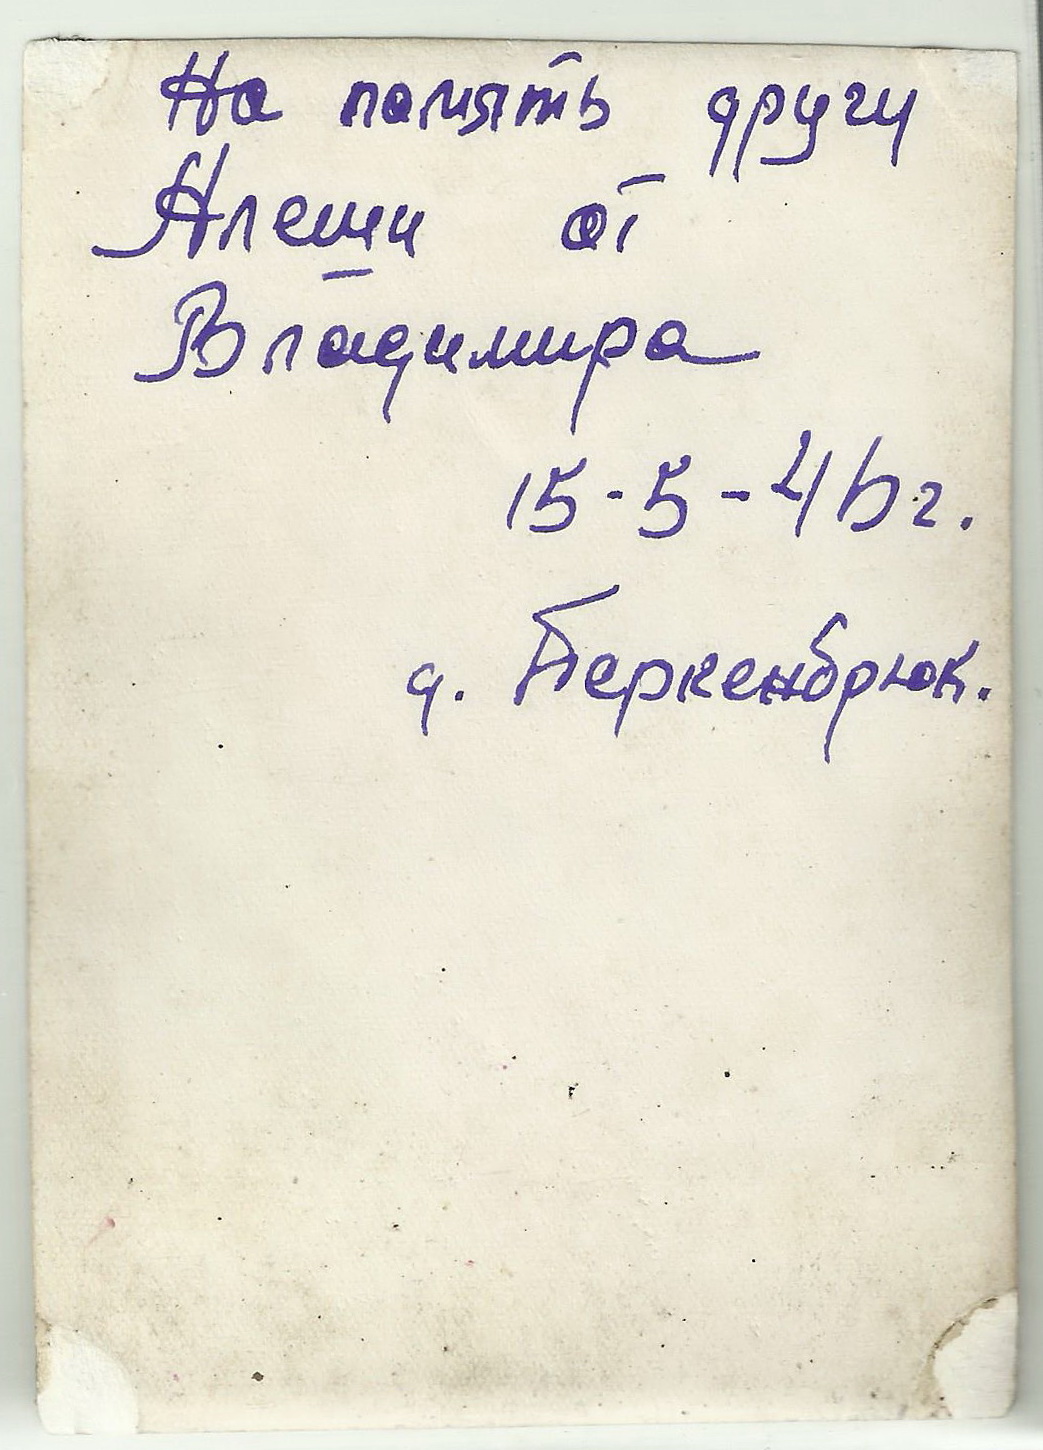 На память другу
Алеши от
Владимира
15-5-46г.
д. Беркенбрюк.